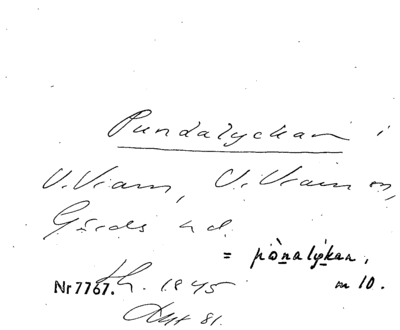 Pundalyckan i
V. Vram, V. Vram sn,
Gärds hd.
= pònalýkan,
Nr 7767. Lh. 1845 m 10.
Akt 81.